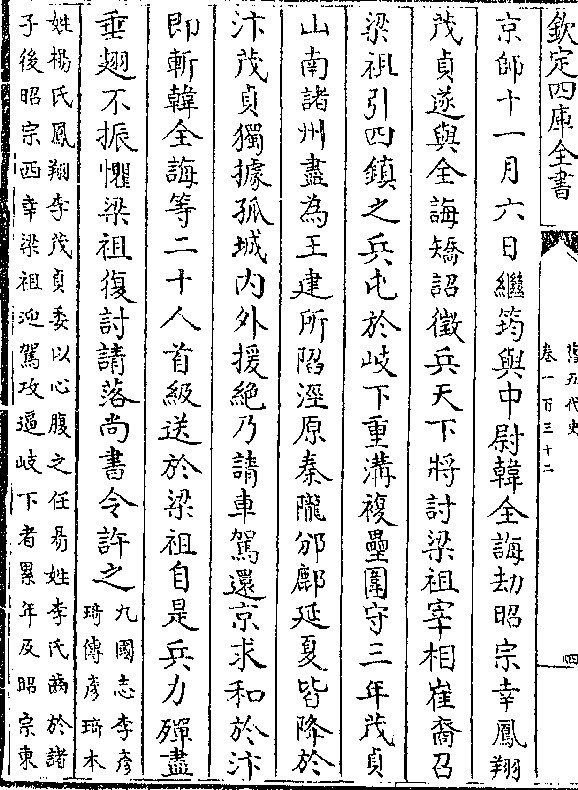 欽定四庫全書
舊五代史
卷一百三十二
四
京師十一月六日繼筠與中尉韓全誨劫昭宗幸鳳翔
茂貞遂與全誨矯詔徵兵天下將討梁祖宰相崔裔召
梁祖引四鎮之兵屯於岐下重溝複壘圍守三年茂貞
山南諸州盡為王建所陷涇原秦隴邠鄜延夏皆降於
汴茂貞獨據孤城内外援絶乃請車駕還京求和於汴
即斬韓全誨等二十人首級送於梁祖自是兵力殫盡
垂翅不振懼梁祖復討請落尚書令許之
九國志李彦
琦傳彦琦本
姓楊氏鳳翔李茂貞委以心腹之任易姓李氏齒於諸
子後昭宗西幸梁祖迎駕攻逼岐下者累年及昭宗東